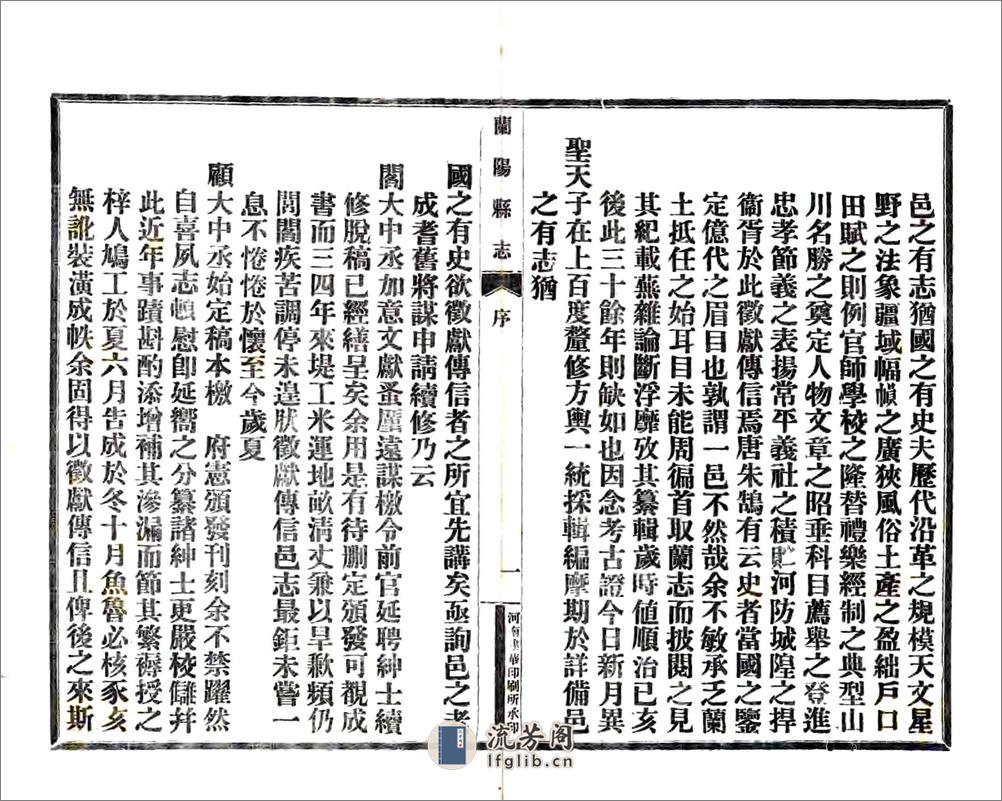 邑之有志猶國之有史夫歷代沿革之規模天文星
野之法象疆域幅幀之廣狹風俗土產之盈絀戶口
田賦之則例官師學校之隆替禮樂經制之典型山
川名勝之奠定人物文章之昭垂科目薦舉之登進
忠孝節義之表揚常平義社之積貯河防城隍之捍
衞胥於此徵獻傳信焉唐朱鵠有云史者當國之鑒
定億代之眉目也孰謂一邑不然哉余不敏承乏蘭
土抵任之始耳目未能周徧首取蘭志而披閱之見
其紀載蕪雜論斷浮靡攷其纂輯歲時值順治已亥
後此三十餘年則缺如也因念考古證今日新月異
聖天子在上百度釐修方輿一統採輯編摩期於詳備邑
之有志猶
蘭陽縣志
序
一
河 印刷所承印
國之有史欲徵獻傳信者之所宜先講矣亟詢邑之老
成耆舊將謀申請續修乃云
閻大中丞加意文獻蚤厪遠謀檄令前官延聘紳士續
修脫稿已經繕呈矣余用是有待刪定頒發可觀成
書而三四年來堤工米運地畝清丈兼以旱歉頻仍
閭閻疾苦調停未遑狀徵獻傳信邑志最鉅未嘗一
息不惓惓於懷至今歲夏
顧大中丞始定稿本檄 府憲頒發刊刻余不禁躍然
自喜夙志頓慰卽延嚮之分纂諸紳士更嚴校讎幷
此近年事蹟斟酌添增補其滲漏而節其繁褥授之
梓人鳩工於夏六月告成於冬十月魚魯必核豕亥
無訛裝潢成帙余固得以徵獻傳信且俾後之來斯
流芳阁
lfglib.cn